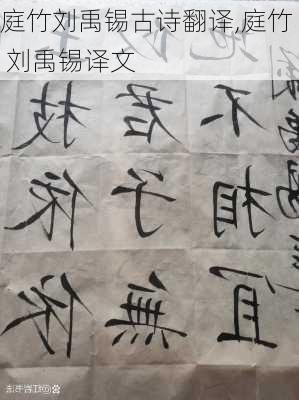 庭竹刘禹锡古诗翻译,庭竹
刘禹锡译文
枝依依
似君子無
地不相宜